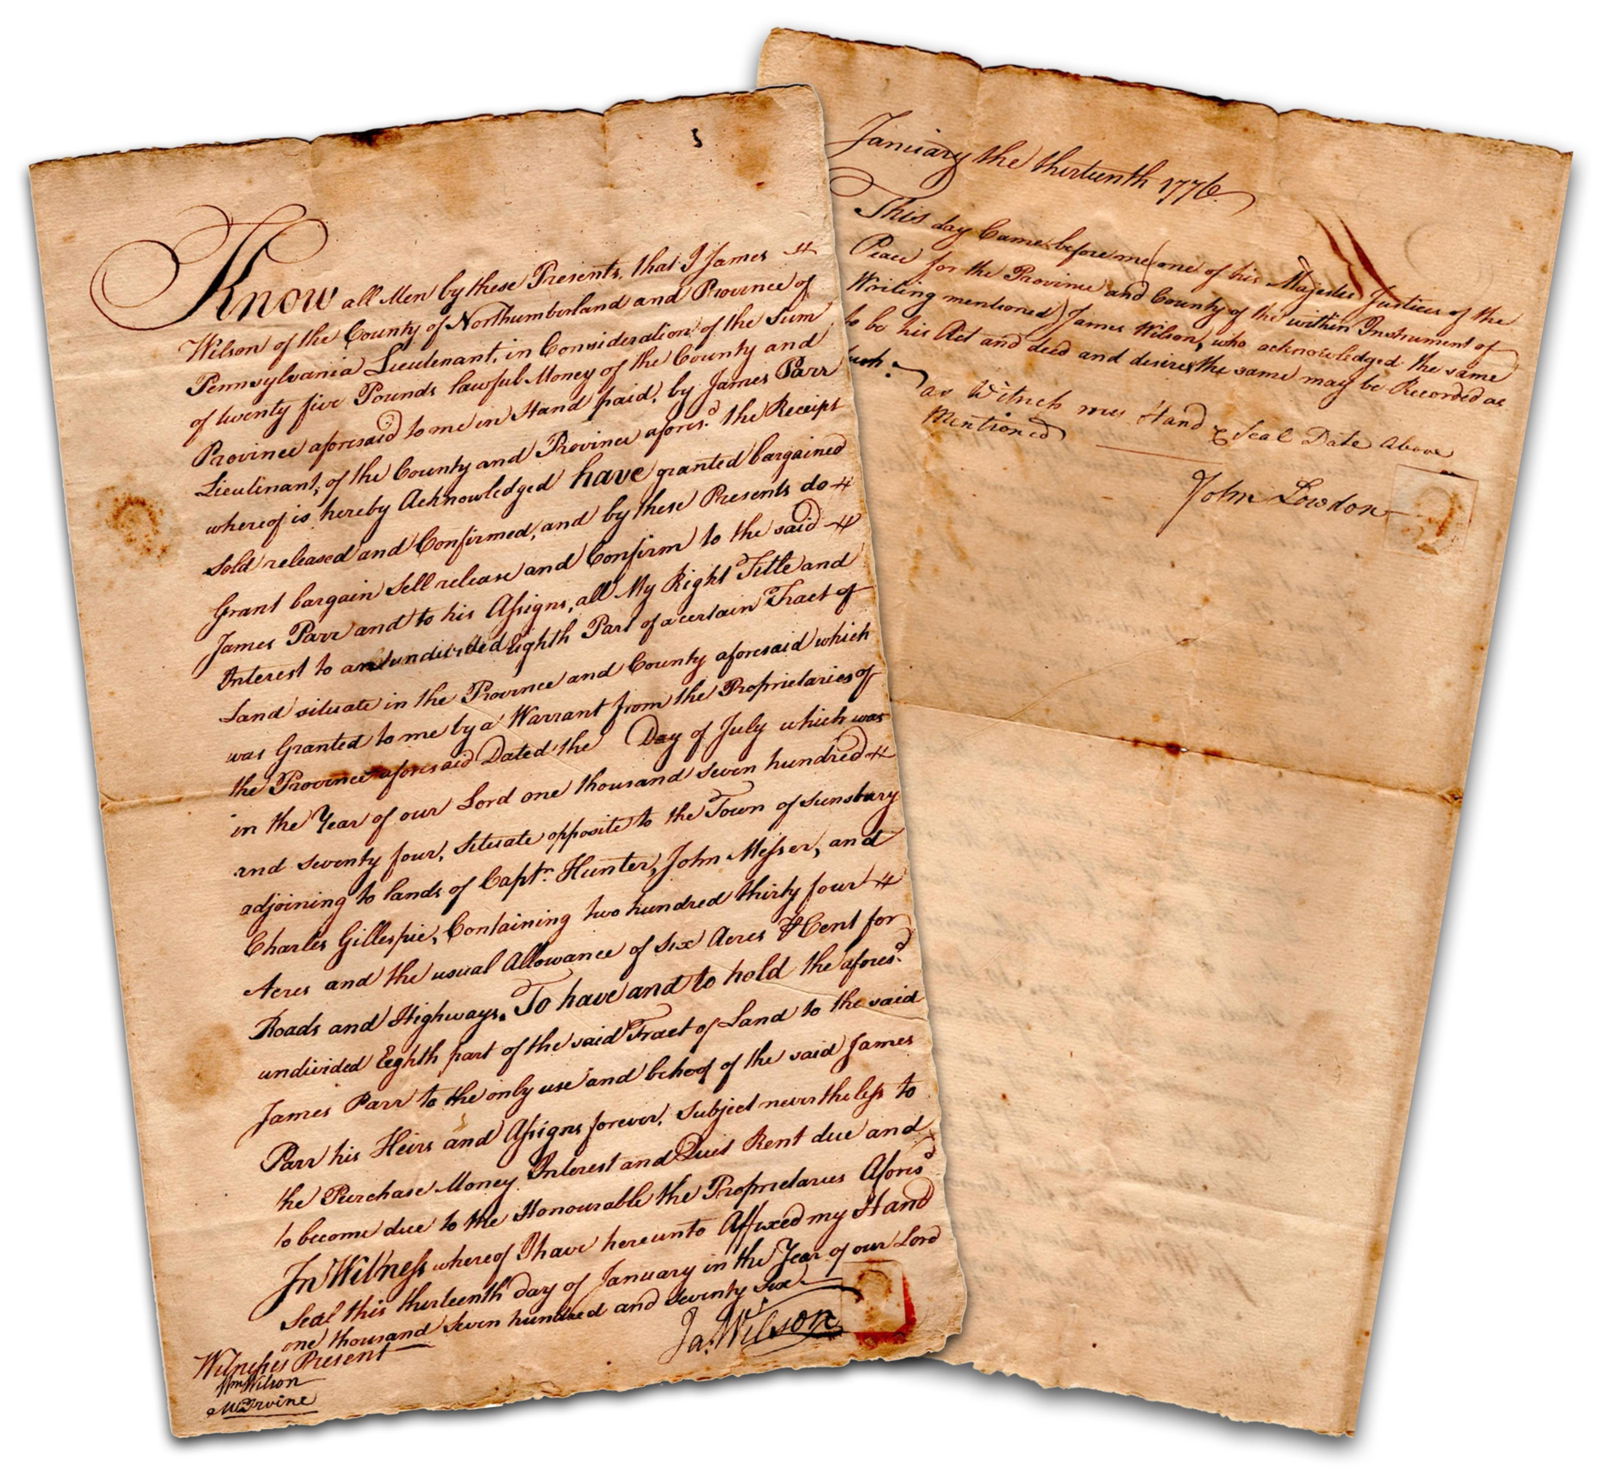 Know all Men by these Presents, that I James
Wilson of the County of Northumberland and Province of
Pennsylvania Lieutenant, in Consideration of the Sum
of twenty five Pounds lawful Money of the County and
Province aforesaid to me in Hand paid, by James Parr
Lieutenant, of the County and Province afores.d the Receipt
whereof is hereby Acknowledged have granted bargained
sold released and Confirmed, and by these Presents do
Grant bargain Sell release and Confirm to the said
James Parr and to his Assigns, all My Right Title and
Interest to an undivided Eighth Part of a certain Tract of
Land situate in the Province and County aforesaid which
was Granted to me by a Warrant from the Proprietaries of
the Province aforesaid Dated the Day of July which was
in the Year of our Lord one thousand seven hundred
and seventy four, situate opposite to the Town of Sunsbury
adjoining to lands of Capt.n Hunter, John Messer, and
Charles Gillespie, Containing two hundred thirty four
Acres and the usual Allowance of six Acres ⅌ Cent for
Roads and Highways. To have and to hold the afores.d
undivided Eighth part of the said Tract of Land to the said
James Parr to the only use and behoof of the said James
Parr his Heirs and Assigns forever, Subject nevertheless to
the Purchase Money Interest and Quit Rent due and
to become due to the Honourable the Proprietaries Afores.d
In Witness whereof I have hereunto Affixed my Hand
Seal this thirteenth day of January in the Year of our Lord
one thousand seven hundred and seventy six
Ja. Wilson
Witnesses Present
Wm Wilson
M. Irvine
January the thirteenth 1776.
This day Came before me (one of his Majesties Justices of the
Peace for the Province and County of the within Instrument of
Writing mentioned) James Wilson, who acknowledged the same
to be his Act and deed and desires the same may be Recorded as
such.
as Witness my Hand & Seal Date Above
Mentioned
John Lowdon